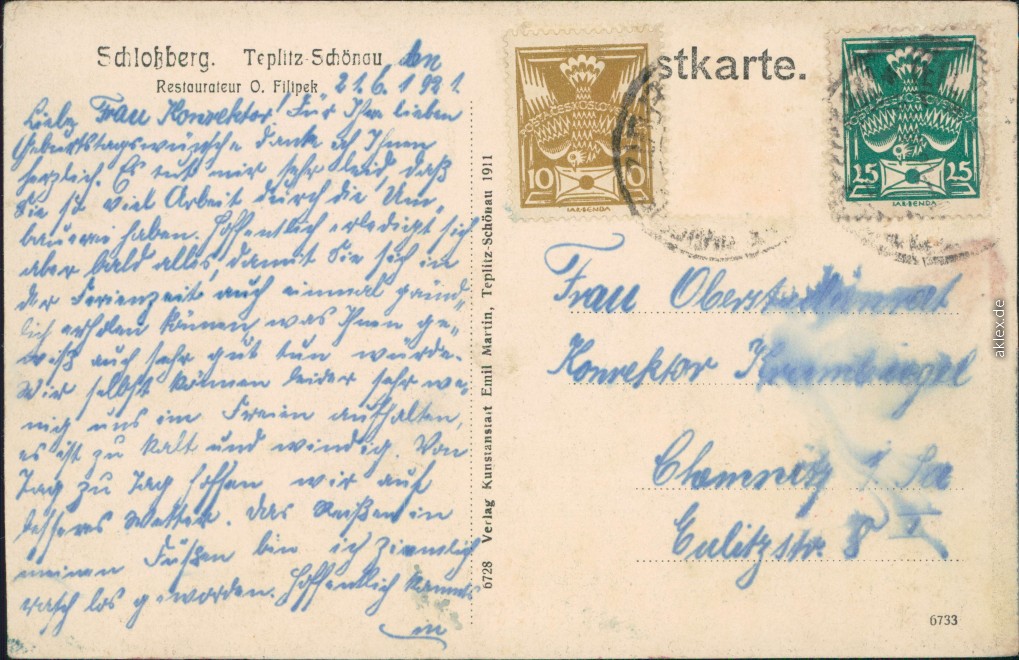 Schloßberg. Teplitz-Schönau den
Restaurateur O. Filipek 21.6.1921.
Liebe Frau Konrektor! Für Ihre lieben
Geburtstagswünsche danke ich Ihnen
herzlich. Es tut mir sehr leid, daß
Sie so viel Arbeit durch die Um-
bauerei haben. Hoffentlich erledigt sich
aber bald alles, damit Sie sich in
der Ferienzeit auch einmal gründ-
lich erholen können was Ihnen ge-
wiß auch sehr gut tun würde.
Wir selbst können leider sehr we-
nig uns im Freien aufhalten,
es ist zu kalt und windig. Von
Tag zu Tag hoffen wir auf
besseres Wetter. Das Reißen in
meinen Füßen bin ich ziemlich
rasch los geworden. Hoffentlich kommts
6728 Verlag Kunstanstalt Emil Martin, Teplitz-Schönau 1911
Postkarte.
POSTA ČESKOSLOVENSKÁ
10 10
JAK·BENDA
POSTA ČESKOSLOVENSKÁ
25 25
JAK·BENDA
Frau
Konrektor Krumbiegel
Chemnitz i. Sa
Eulitzstr. 8 I
6733
aklex.de